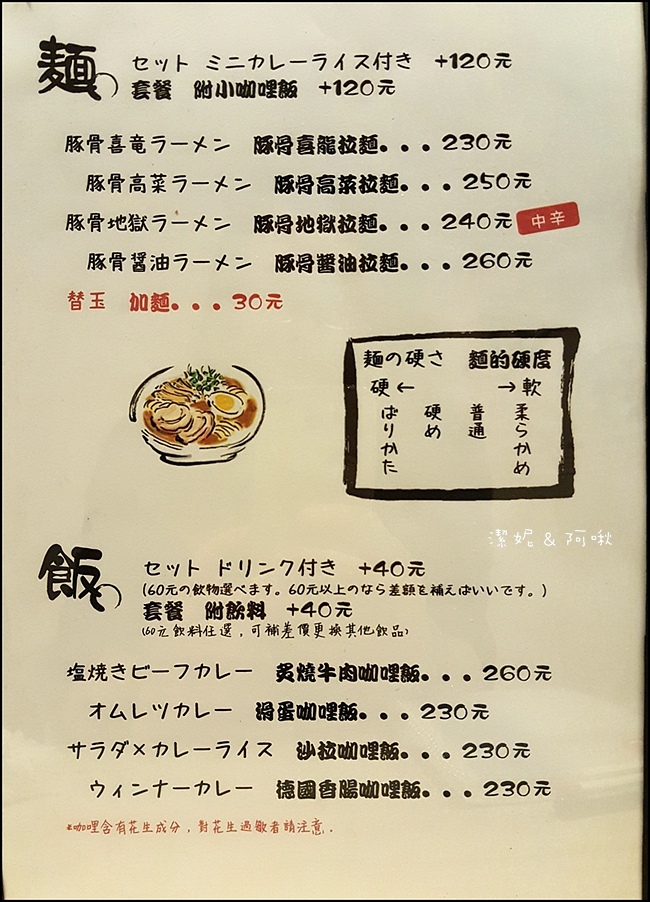 麺
セット ミニカレーライス付き +120元
套餐 附小咖哩飯 +120元
豚骨喜竜ラーメン 豚骨喜龍拉麵...230元
豚骨高菜ラーメン 豚骨高菜拉麵...250元
豚骨地獄ラーメン 豚骨地獄拉麵...240元 中辛
豚骨醤油ラーメン 豚骨醬油拉麵...260元
替玉 加麵...30元
麺の硬さ 麵的硬度
硬← →軟
ばりかた 硬め 普通 柔らかめ
潔妮&阿啾
飯
セット ドリンク付き +40元
(60元の飲物選べます。60元以上のなら差額を補えばいいです。)
套餐 附飲料 +40元
(60元飲料任選,可補差價更換其他飲品)
塩焼きビーフカレー 炙燒牛肉咖哩飯...260元
オムレツカレー 滑蛋咖哩飯...230元
サラダ×カレーライス 沙拉咖哩飯...230元
ウィンナーカレー 德國香腸咖哩飯...230元
*咖哩含有花生成分,對花生過敏者請注意.